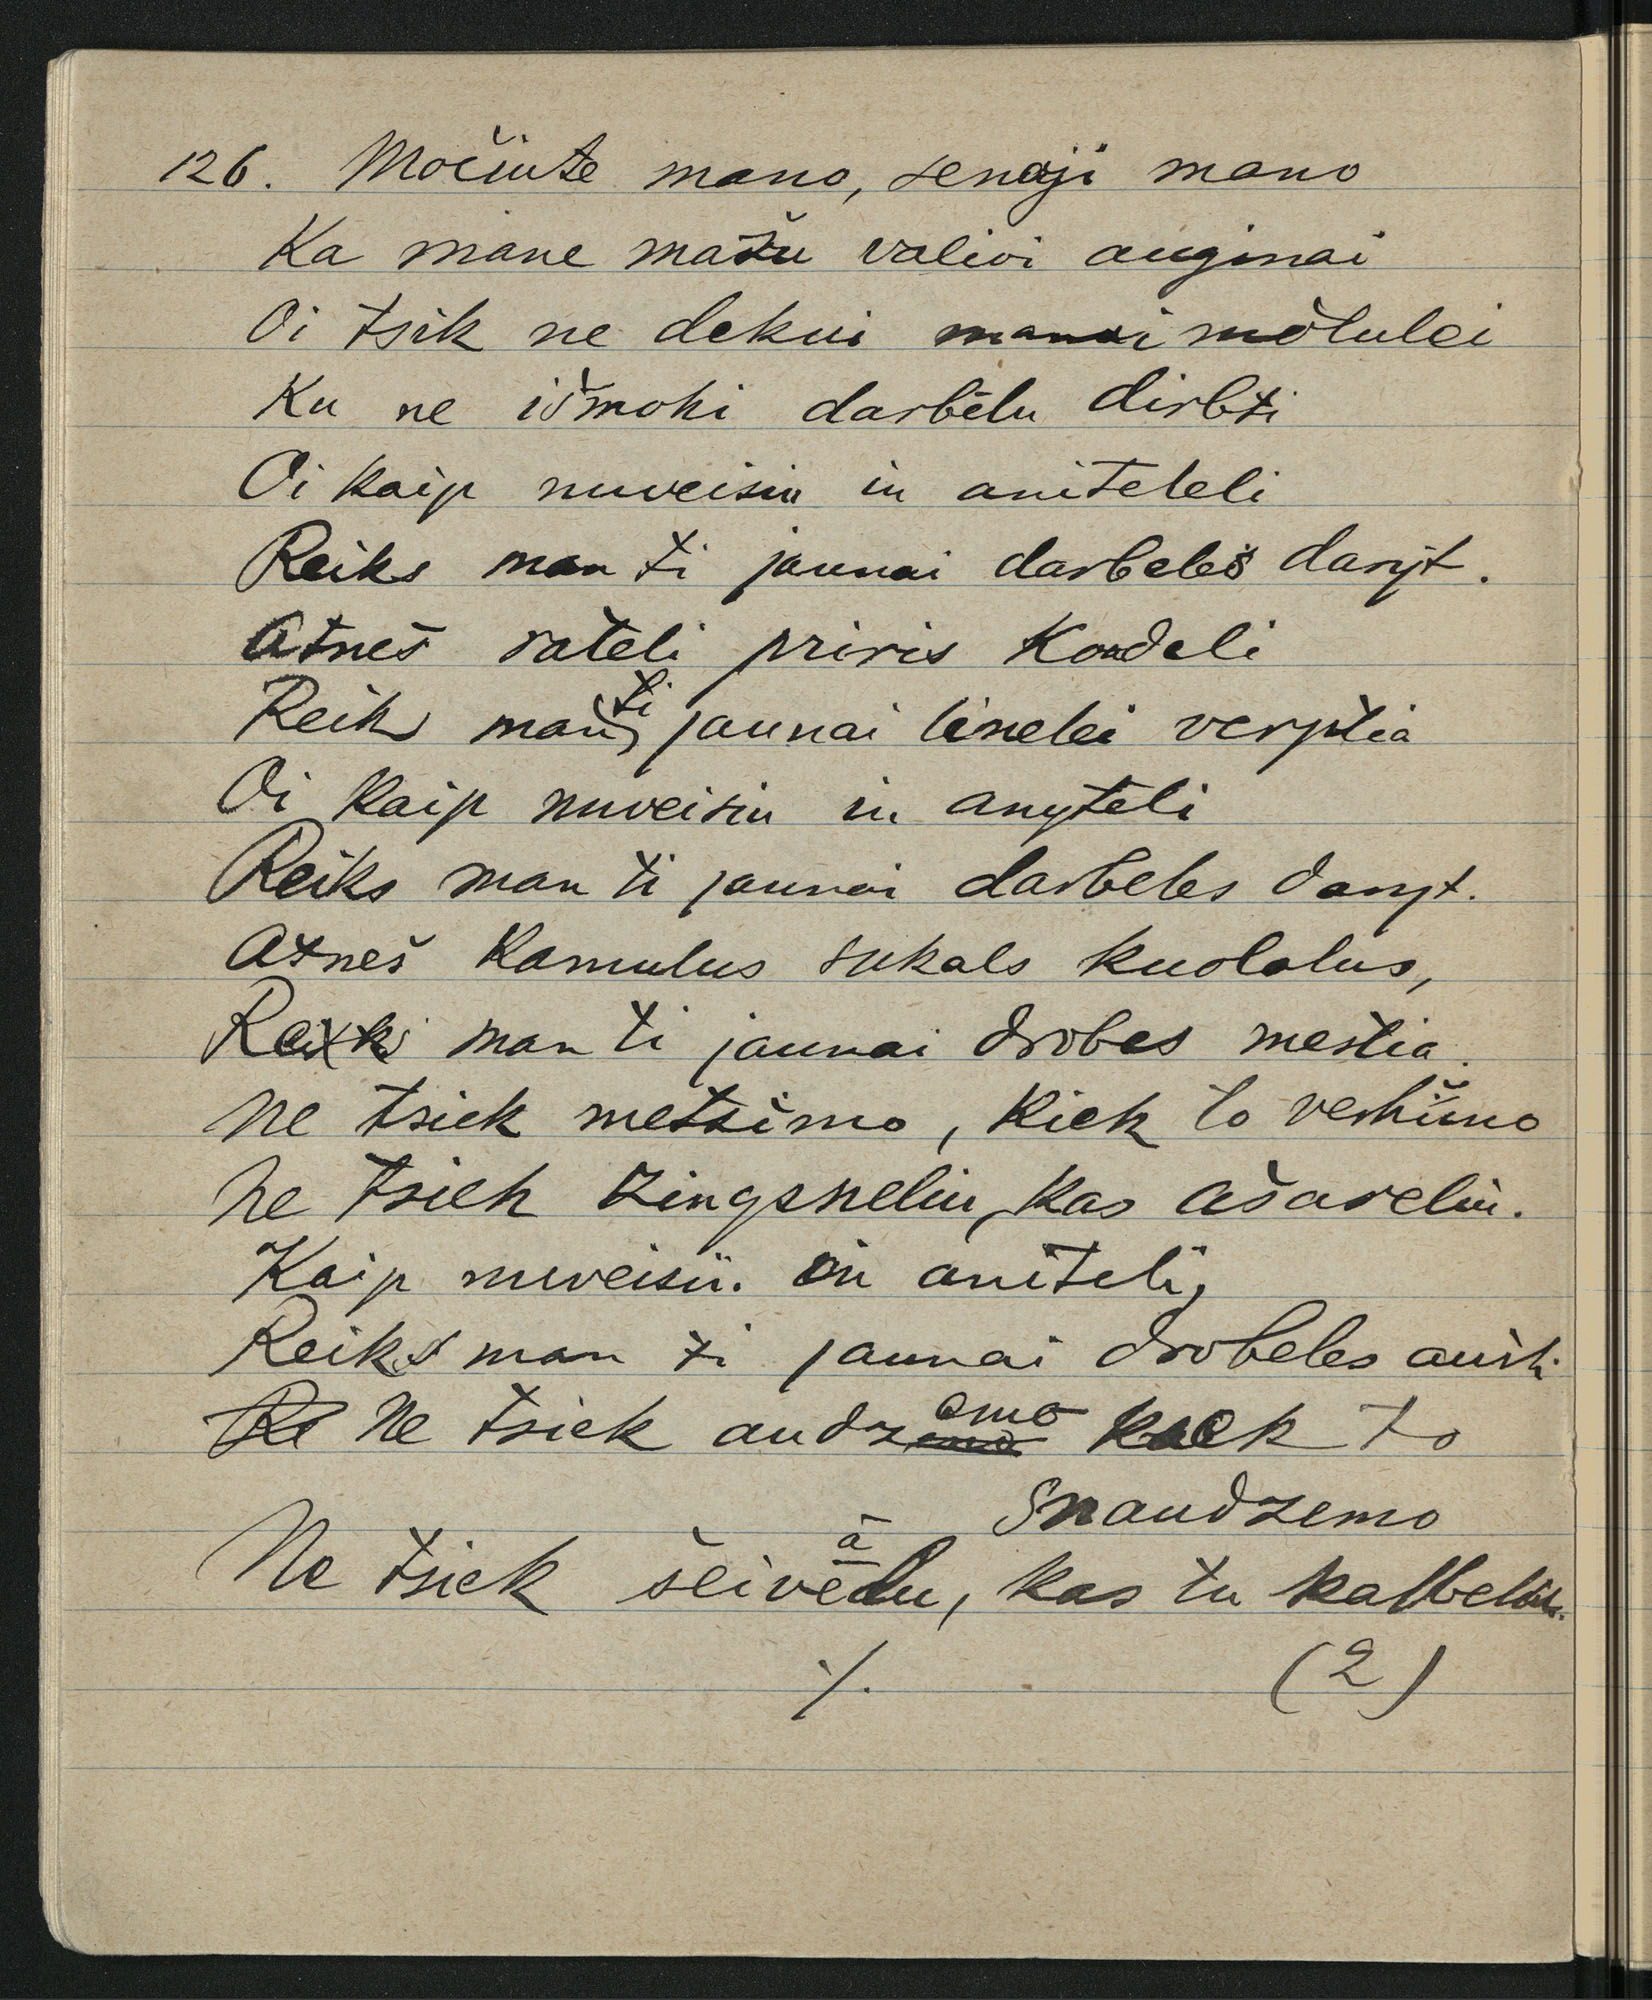 126. Močiute mano, senaji mano
Ka mane mažu valioi auginai
Oi tsik ne dekui mõtulei
Ku ne išmoki darbēlu dirbti
Oi kaip nuveisiu in aniteleli
Reiks man ti jaunai darbeles daryt.
Atneš ratēli priris Koadeli
Reiks man ti jaunai linelei verptia
Oi kaip nuveisiu in anytēli
Reiks man ti jaunai darbeles daryt.
Atneš Kamulus sukals kuolalus,
Reiks man ti jaunai drobes mestia.
Ne tsiek metsimo, kiek to verkšimo
Ne tsiek zingsneliu, kas ašareliu.
Kaip nuveisiu in aniteli,
Reiks man ti jaunai drobeles austi.
Ne tsiek audzemo kiek to
Snaudzemo
Ne tsiek šeivālu, kas tu
·/. (2)